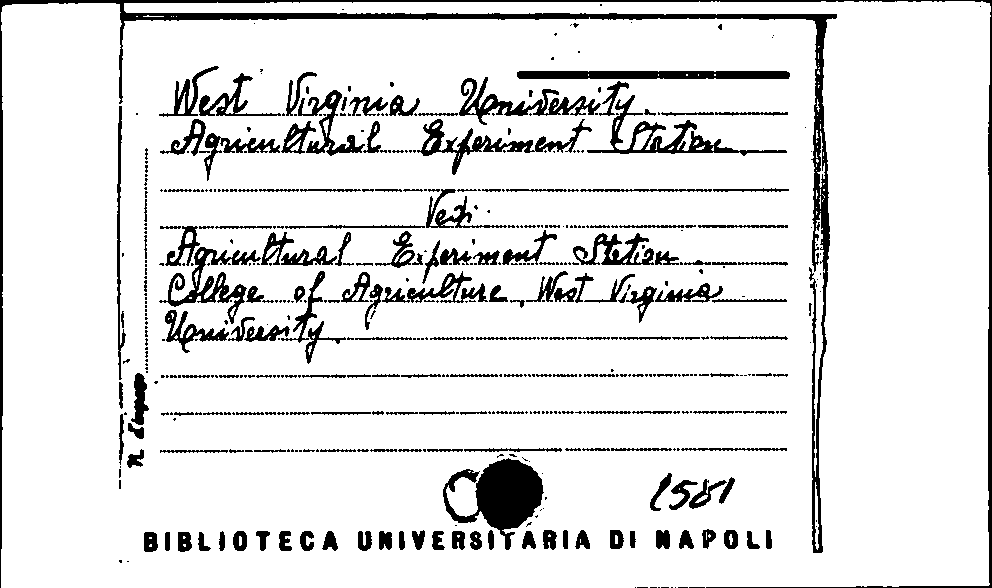 West Virginia University.
Agricultural Experiment Station.
Vedi
Agricultural Experiment Station.
College of Agriculture. West Virginia
University.
N. d'ingresso
1581
BIBLIOTECA UNIVERSITARIA DI NAPOLI